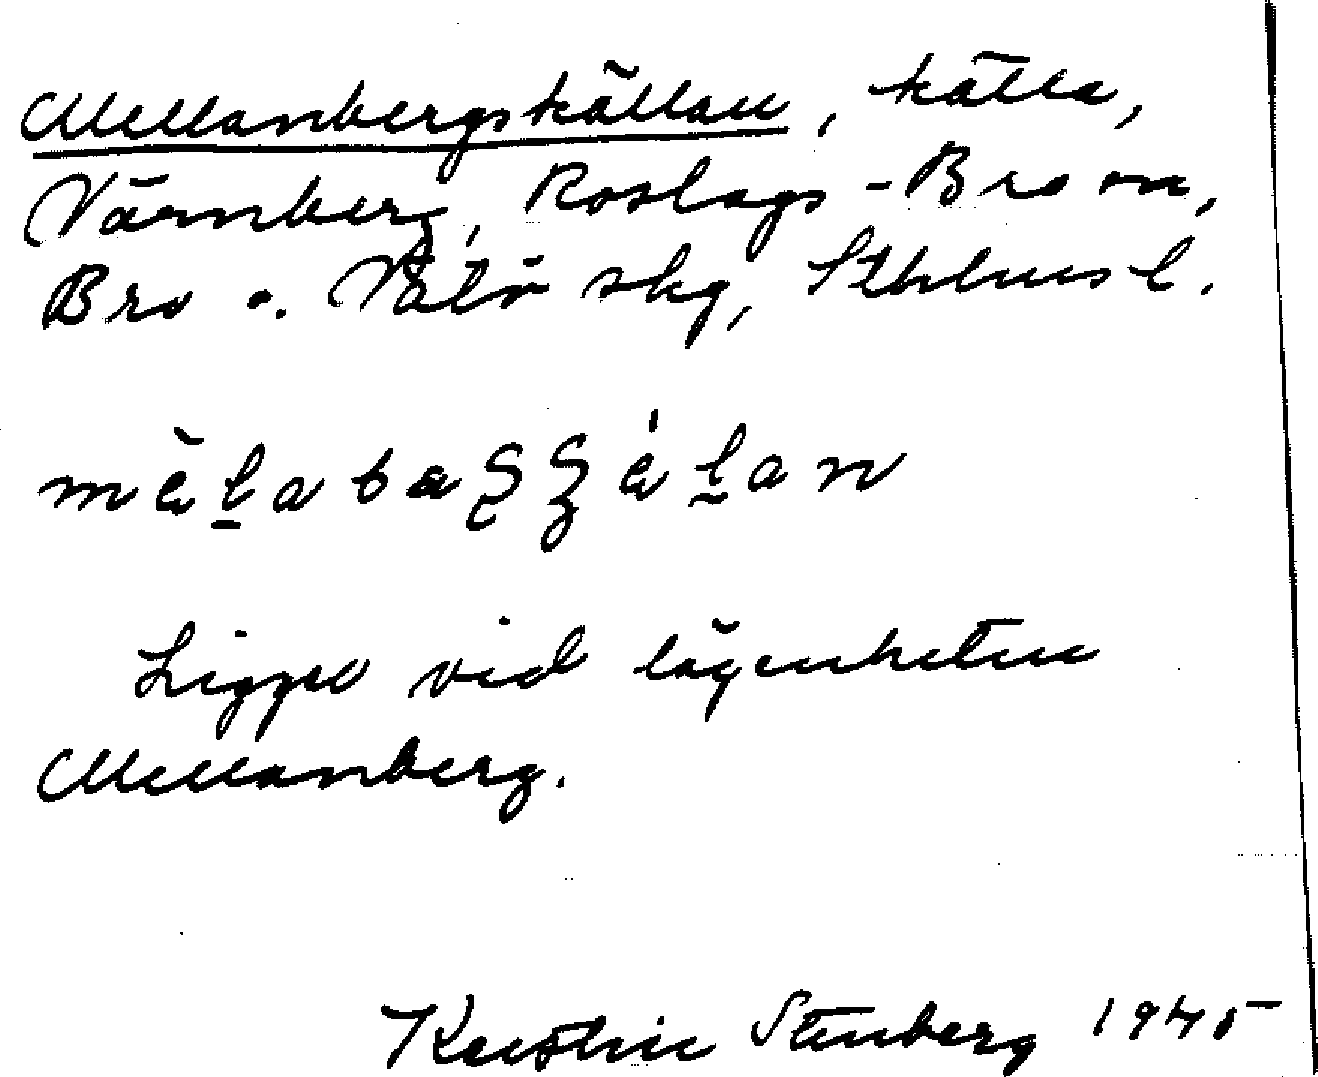 Mellanbergskällan, källa,
Värnberg, Roslags-Bro sn,
Bro o. Vätö skg, Sthlms l.
Ligger vid lägenheten
Mellanberg.
Kerstin Stenberg 1945